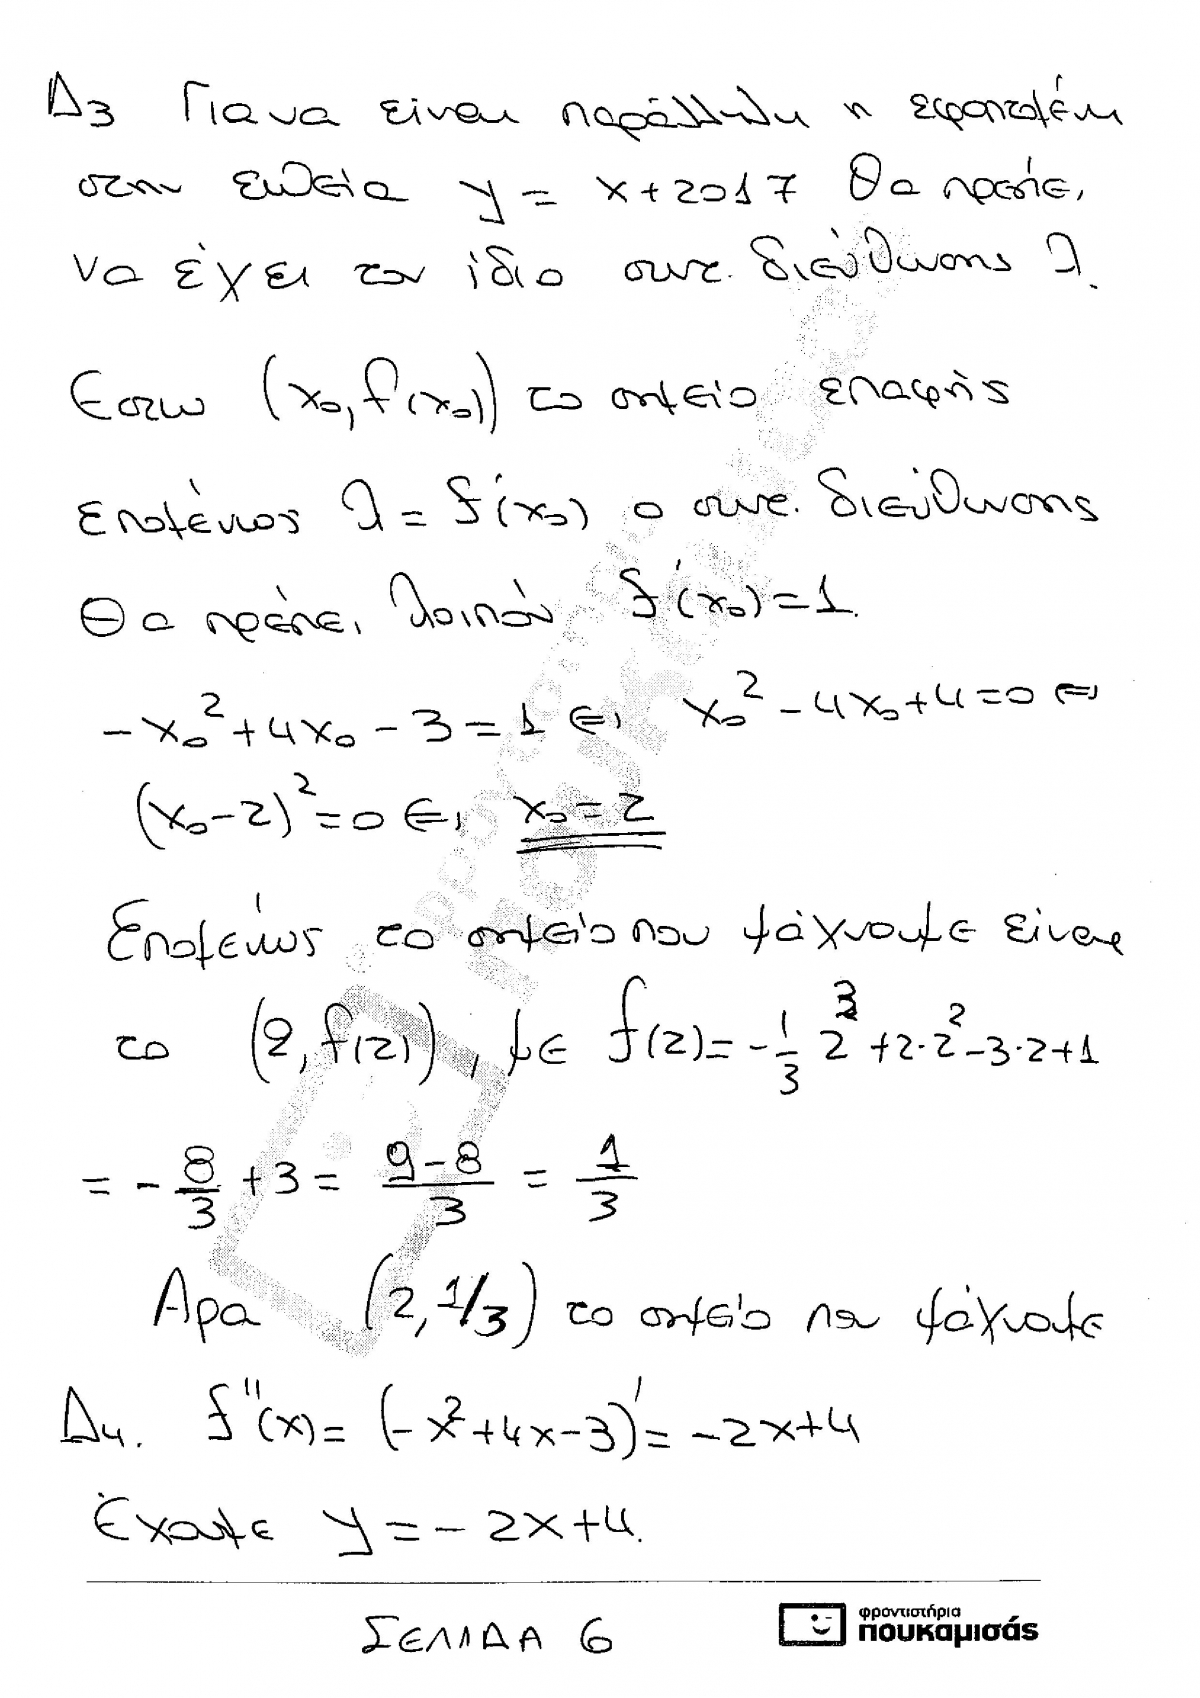 Δ3 Για να είναι παράλληλη η εφαπτομένη
στην ευθεία y = x + 2017 θα πρέπει
να έχει τον ίδιο συντ. διεύθυνσης λ.
Εστω (x₀, f(x₀)) το σημείο επαφής
επομένως λ = f'(x₀) ο συντ. διεύθυνσης
Θα πρέπει λοιπόν f'(x₀) = 1.
-x₀² + 4x₀ - 3 = 1 ⇔ x₀² - 4x₀ + 4 = 0 ⇔
(x₀ - 2)² = 0 ⇔ x₀ = 2
Επομένως το σημείο που ψάχνουμε είναι
το (2, f(2)), με f(2) = -1/3 2³ + 2·2² - 3·2 + 1
= -8/3 + 3 = (9-8)/3 = 1/3
Αρα (2, 1/3) το σημείο που ψάχνουμε
Δ4. f''(x) = (-x² + 4x - 3)' = -2x + 4
Έχουμε y = -2x + 4.
ΣΕΛΙΔΑ 6
φροντιστήρια
πουκαμισάς